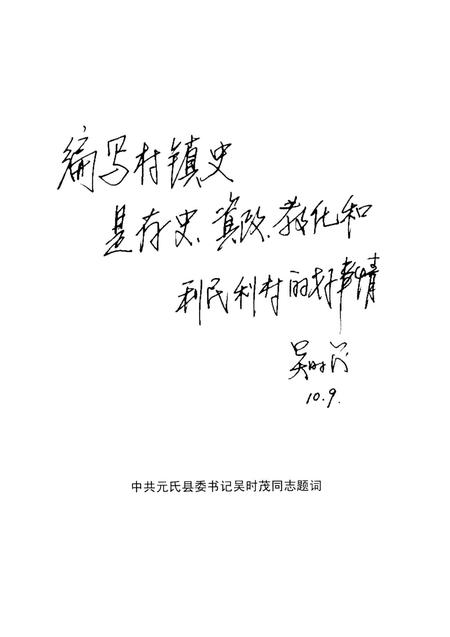 编写村镇史
是存史、资政、教化和
利民利村的好事情
吴时茂
10.9.
中共元氏县委书记吴时茂同志题词